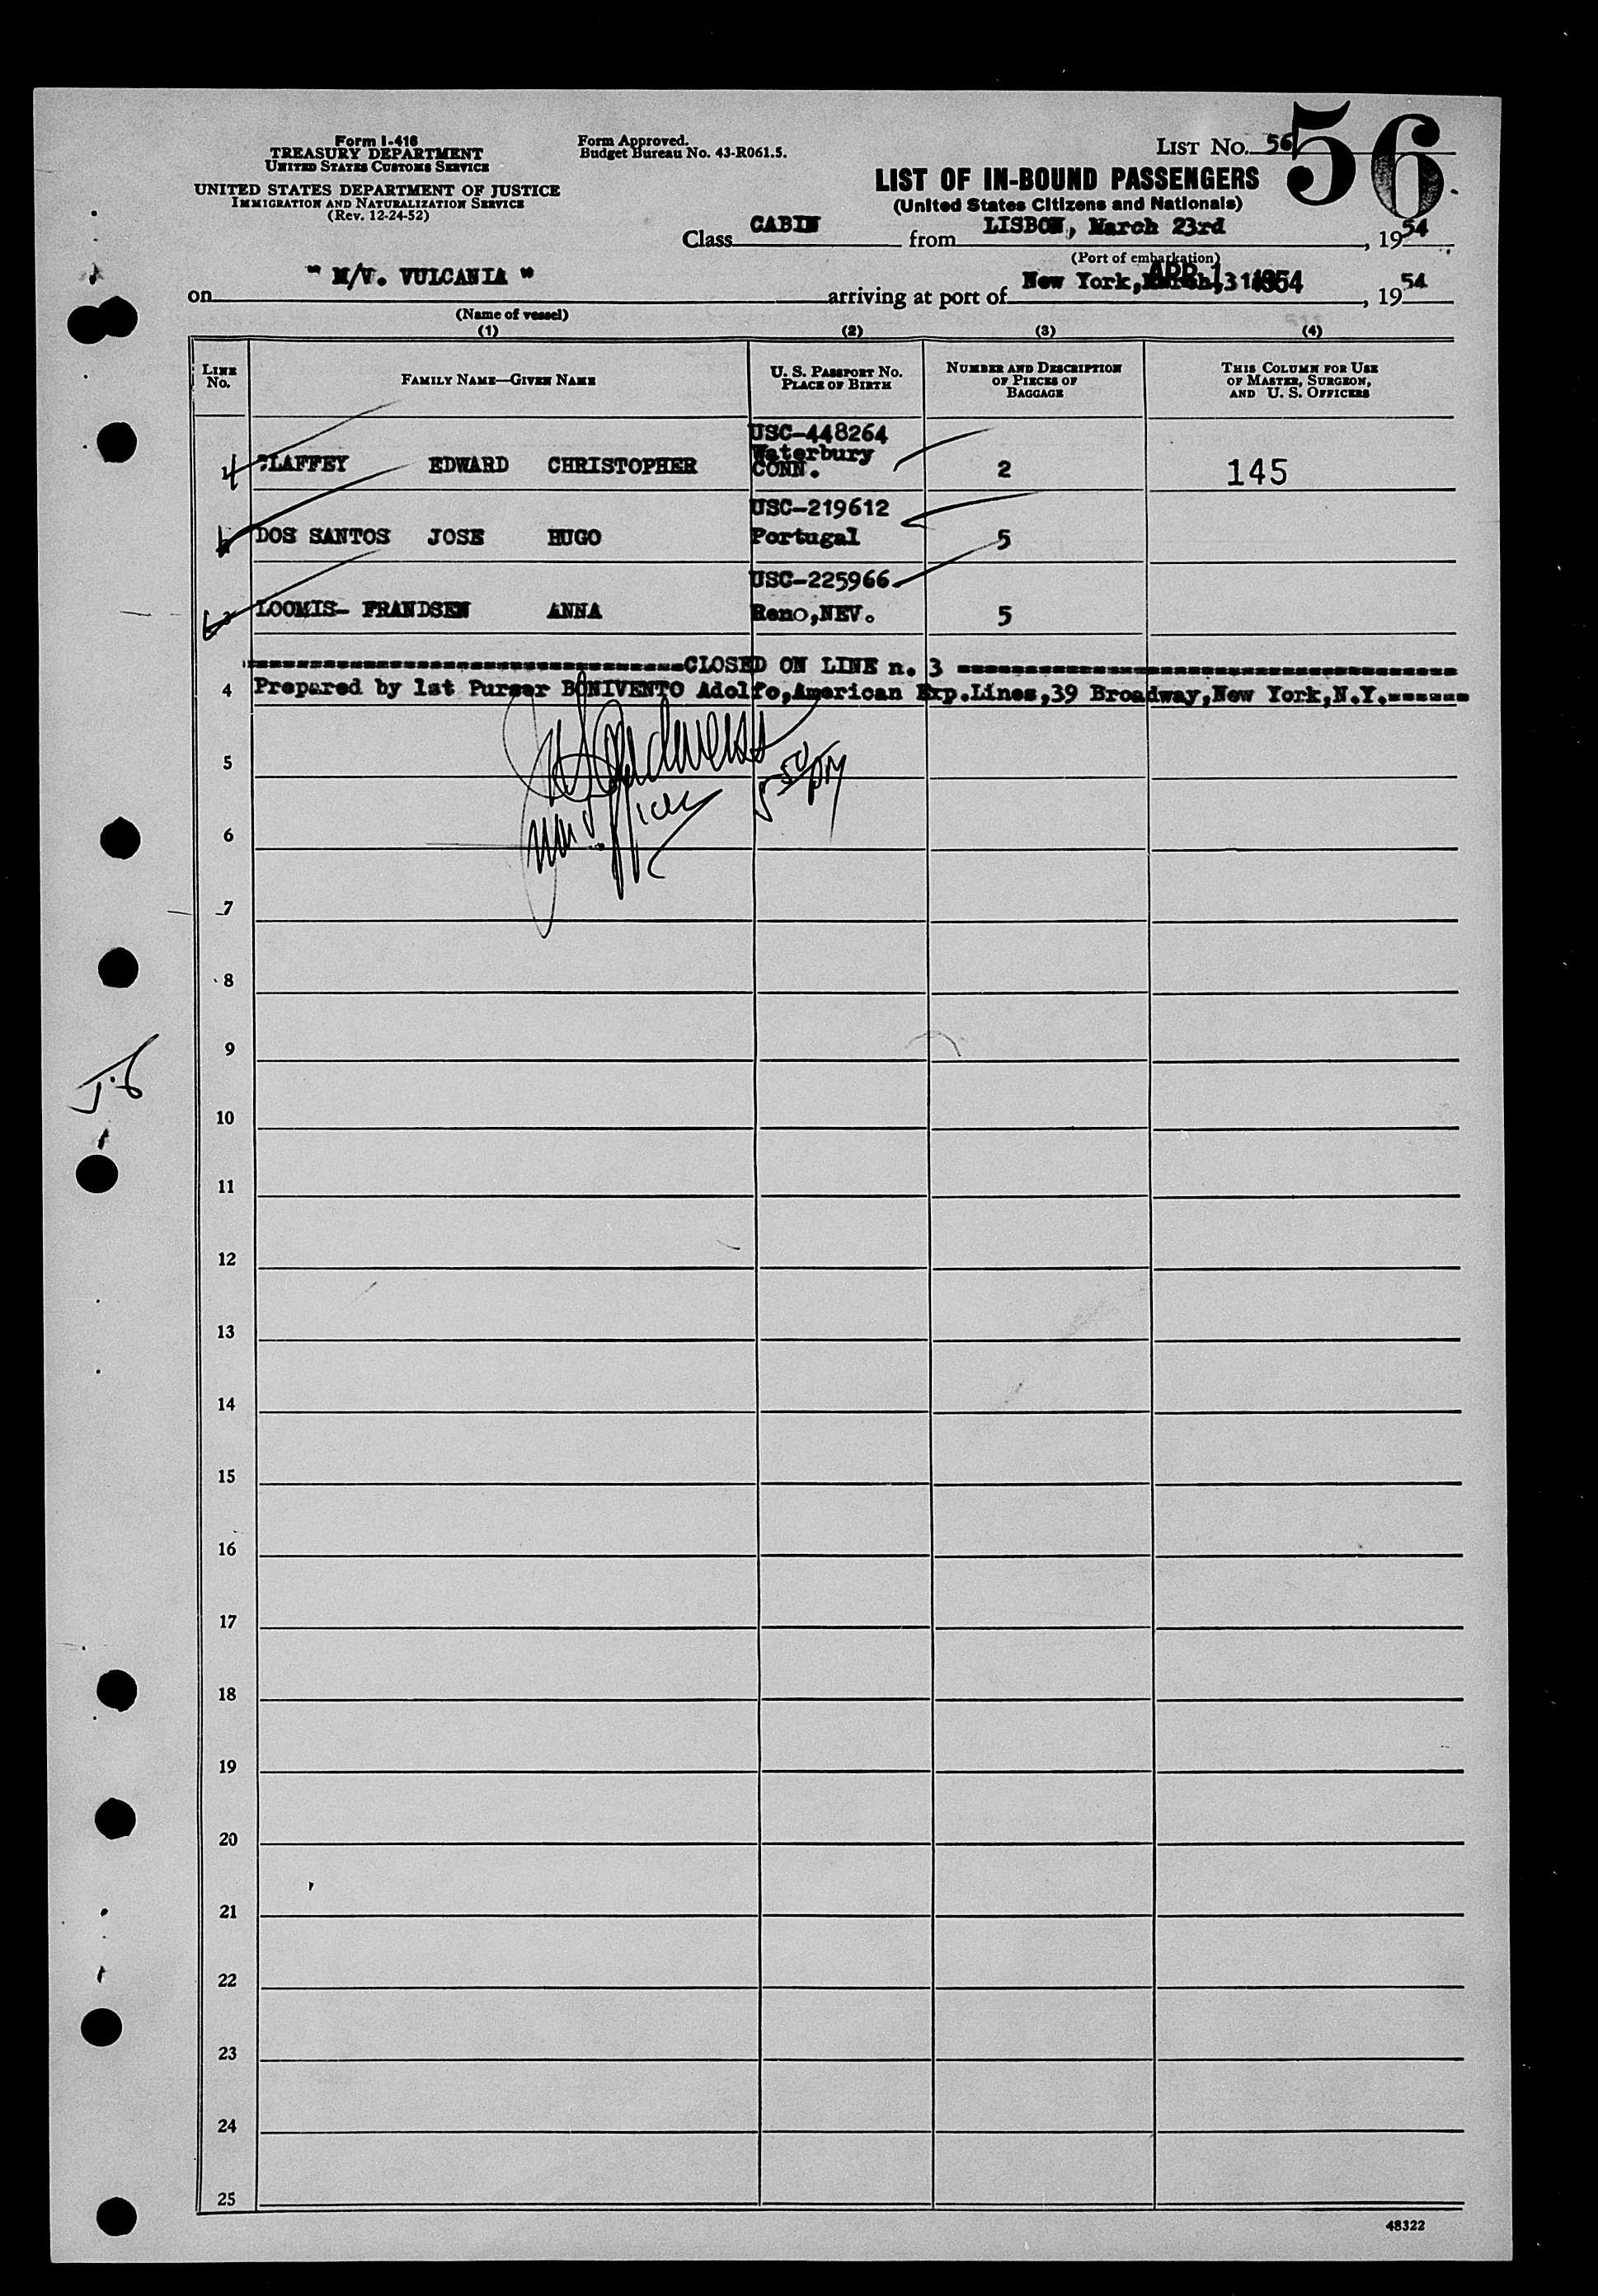 Form I-416
TREASURY DEPARTMENT
UNITED STATES CUSTOMS SERVICE
UNITED STATES DEPARTMENT OF JUSTICE
IMMIGRATION AND NATURALIZATION SERVICE
(Rev. 12-24-52)
Form Approved.
Budget Bureau No. 43-R061.5.
LIST No. 56
56
LIST OF IN-BOUND PASSENGERS
(United States Citizens and Nationals)
Class CABIN from LISBON, March 23rd, 1954
(Port of embarkation)
on " M/V. VULCANIA " arriving at port of New York, March, 31 APR 1 1954, 1954
(Name of vessel)
(1) (2) (3) (4)
LINE No. FAMILY NAME—GIVEN NAME U. S. PASSPORT No. PLACE OF BIRTH NUMBER AND DESCRIPTION OF PIECES OF BAGGAGE THIS COLUMN FOR USE OF MASTER, SURGEON, AND U. S. OFFICERS
USC-448264
LAFFEY EDWARD CHRISTOPHER Waterbury CONN. 2 145
USC-219612
DOS SANTOS JOSE HUGO Portugal 5
USC-225966
LOOMIS- FRANDSEN ANNA Reno,NEV. 5
CLOSED ON LINE n. 3
4 Prepared by 1st Purser BONIVENTO Adolfo,American Exp.Lines,39 Broadway,New York,N.Y.
5
550 PM
6
7
8
9
10
11
12
13
14
15
16
17
18
19
20
21
22
23
24
25
48322